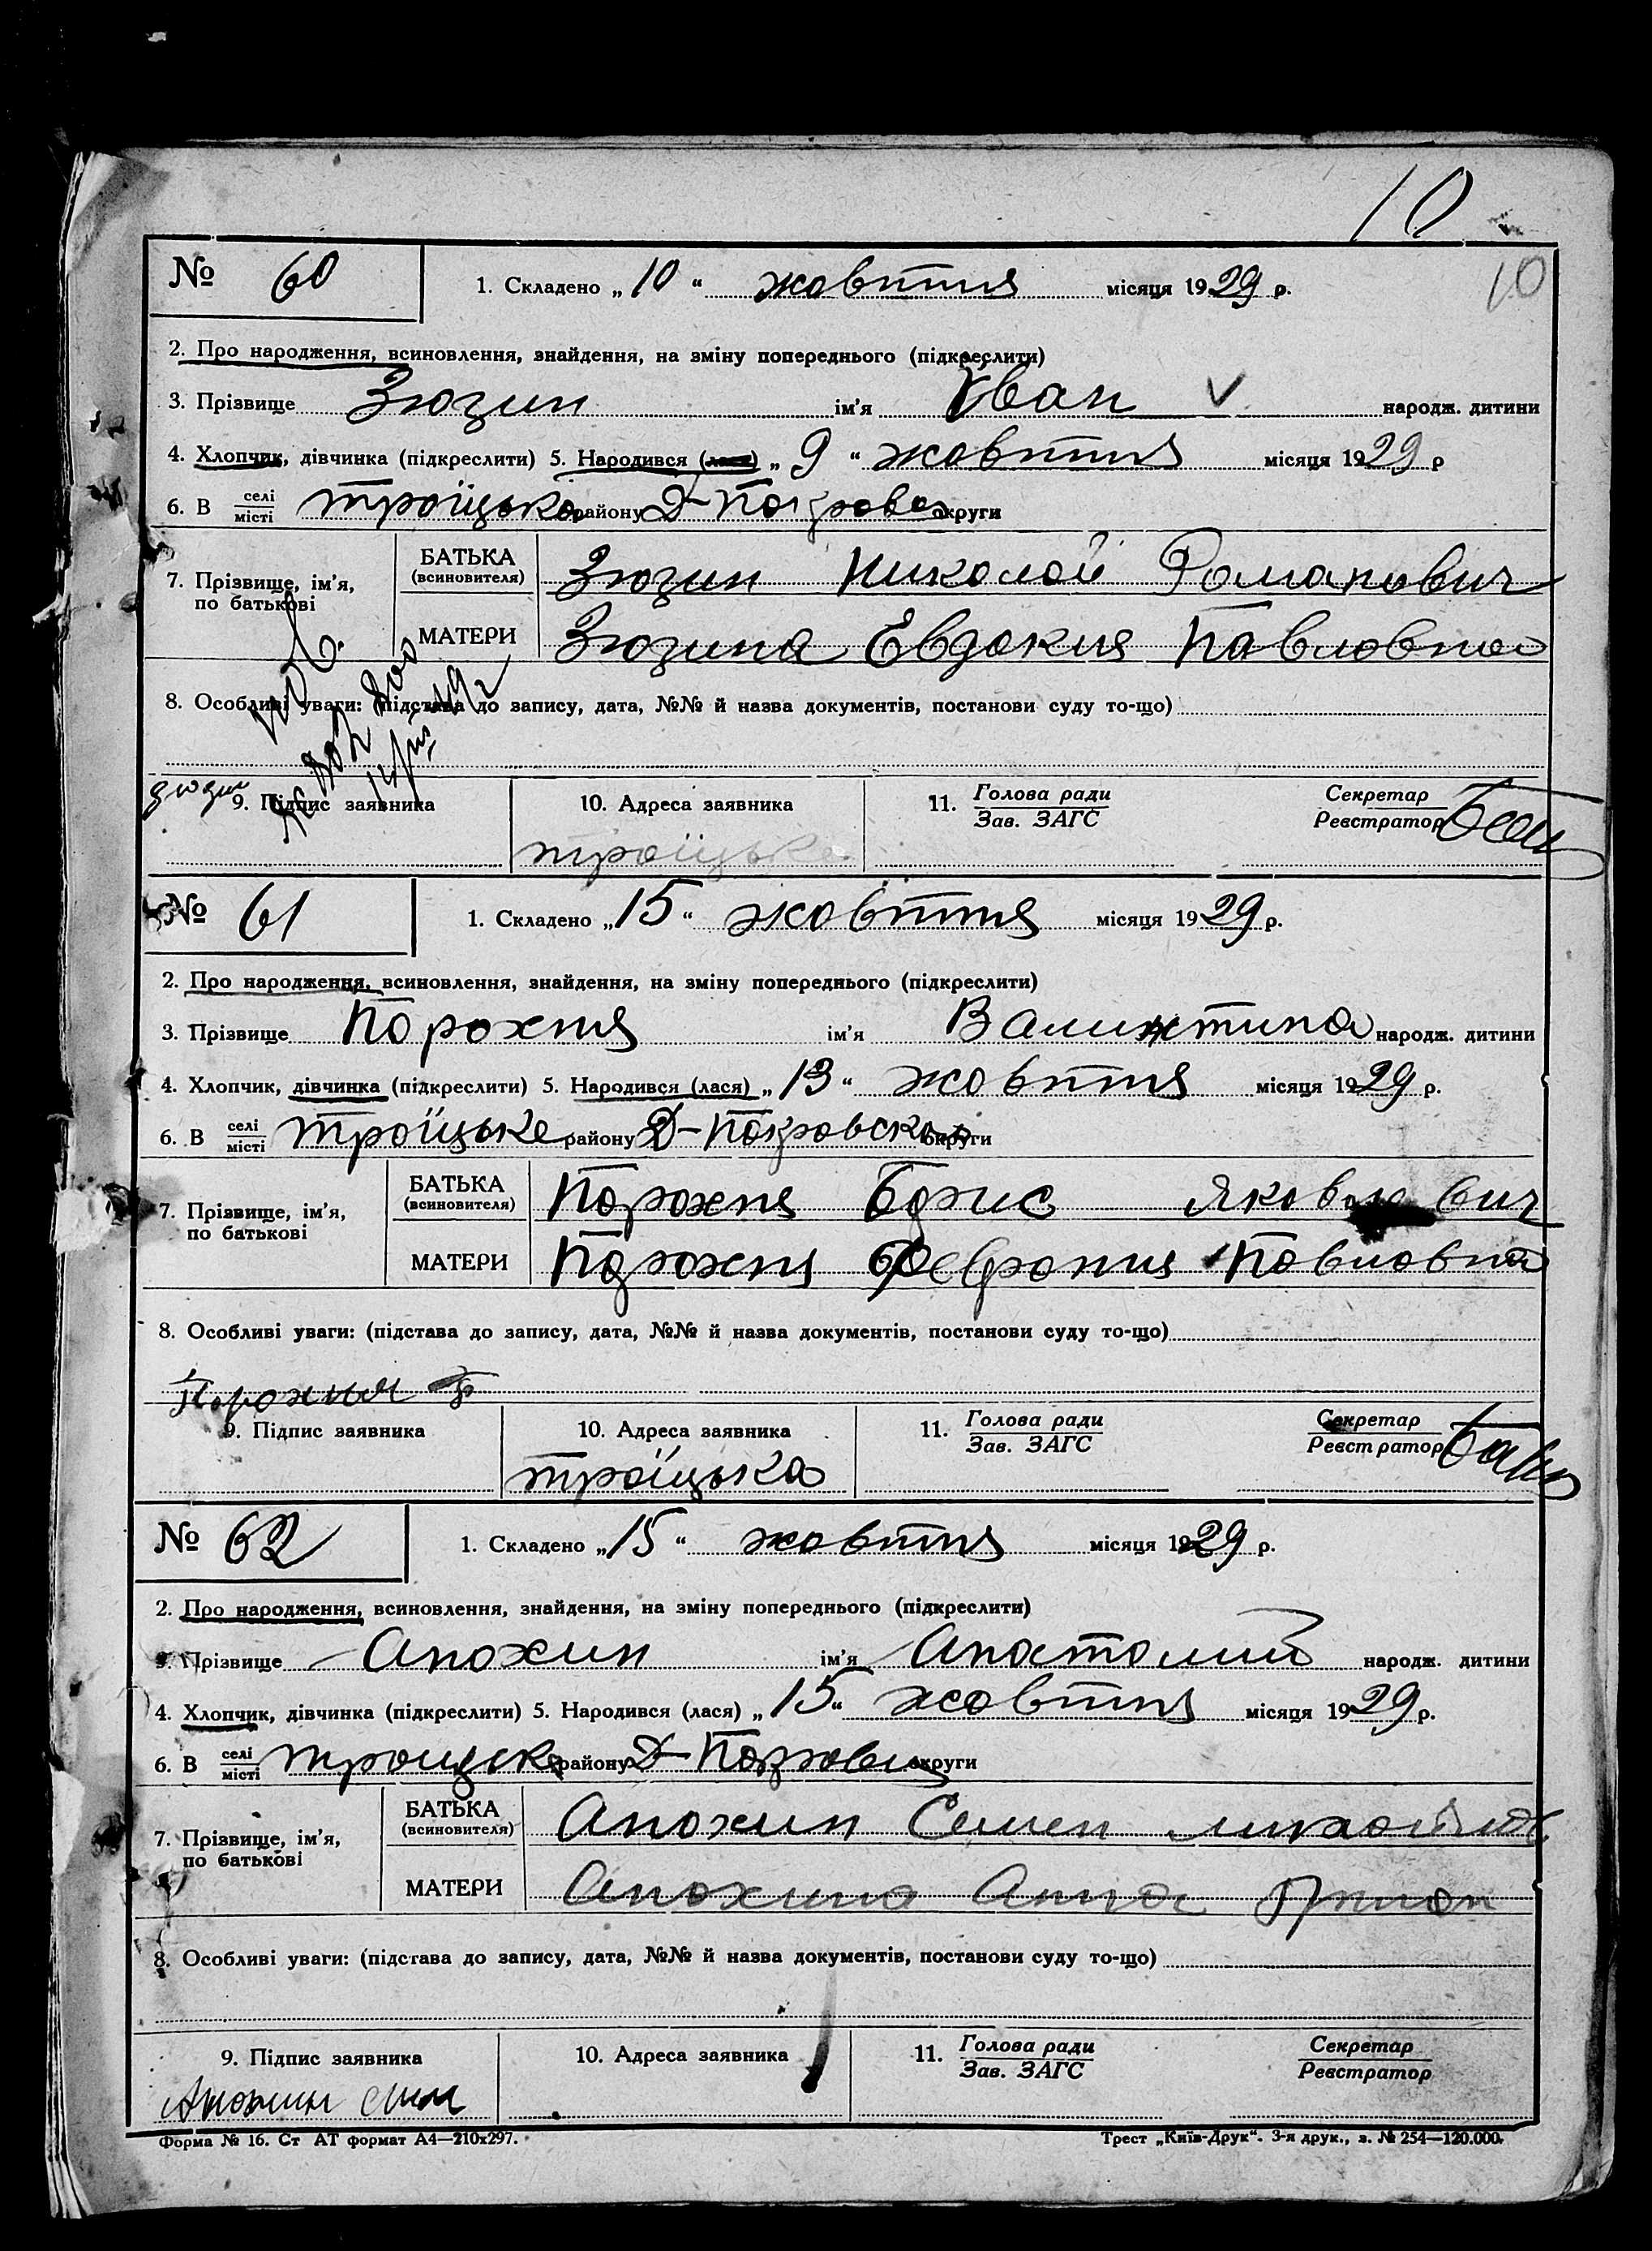 10
10
№ 60 1. Складено „10“ жовтня місяця 1929 р.
2. Про народження, всиновлення, знайдення, на зміну попереднього (підкреслити)
3. Прізвище Зюзин ім'я Іван народж. дитини
4. Хлопчик, дівчинка (підкреслити) 5. Народився (лася) „9“ жовтня місяця 1929 р
6. В селі місті Троїцько району Д-Покровськ округи
7. Прізвище, ім'я, по батькові БАТЬКА (всиновителя) Зюзин Николай Романович
МАТЕРИ Зюзина Евдокия Павловна
8. Особливі уваги: (підстава до запису, дата, №№ й назва документів, постанови суду то-що)
Зюзин
9. Підпис заявника 10. Адреса заявника 11. Голова ради Зав. ЗАГС Секретар Реєстратор
Троїцька
№ 61 1. Складено „15“ жовтня місяця 1929 р.
2. Про народження, всиновлення, знайдення, на зміну попереднього (підкреслити)
3. Прізвище Порохня ім'я Валинтина народж. дитини
4. Хлопчик, дівчинка (підкреслити) 5. Народився (лася) „13“ жовтня місяця 1929 р.
6. В селі місті Троїцьке району Д-Покровська округи
7. Прізвище, ім'я, по батькові БАТЬКА (всиновителя) Порохня Борис Яковлевич
МАТЕРИ Порохня Феврония Павловна
8. Особливі уваги: (підстава до запису, дата, №№ й назва документів, постанови суду то-що)
Порохня Б
9. Підпис заявника 10. Адреса заявника 11. Голова ради Зав. ЗАГС Секретар Реєстратор
Троїцька
№ 62 1. Складено „15“ жовтня місяця 1929 р.
2. Про народження, всиновлення, знайдення, на зміну попереднього (підкреслити)
3. Прізвище Анохин ім'я Анатолий народж. дитини
4. Хлопчик, дівчинка (підкреслити) 5. Народився (лася) „15“ жовтня місяця 1929 р.
6. В селі місті Троицьке району Д-Покровськ округи
7. Прізвище, ім'я, по батькові БАТЬКА (всиновителя) Анохин Семен
МАТЕРИ Анохина Анна
8. Особливі уваги: (підстава до запису, дата, №№ й назва документів, постанови суду то-що)
9. Підпис заявника 10. Адреса заявника 11. Голова ради Зав. ЗАГС Секретар Реєстратор
Анохин
Форма № 16. Ст АТ формат А4—210x297. Трест „Київ-Друк“. 3-я друк., з. № 254—120.000.